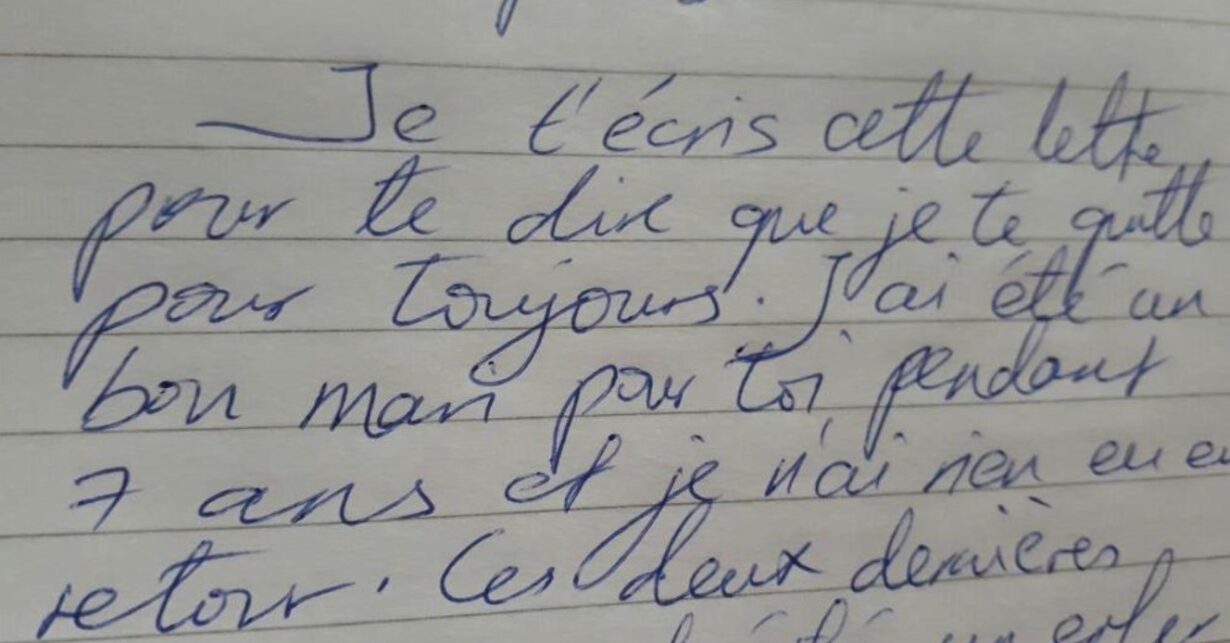 Je t'écris cette lettre
pour te dire que je te quitte
pour toujours. J'ai été un
bon mari pour toi, pendant
7 ans et je n'ai rien eu en
retour. Ces deux dernières
été un enfer